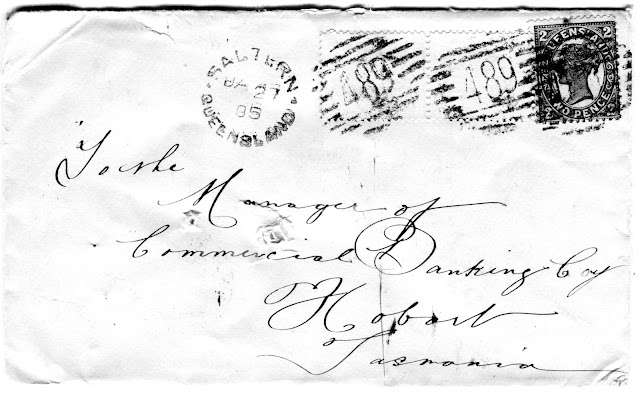 SALTERN
JA 27
QUEENSLAND
489
489
2 QUEENSLAND 2
TWO PENCE
To the
Manager of
Commercial Banking Coy
Hobart
Tasmania